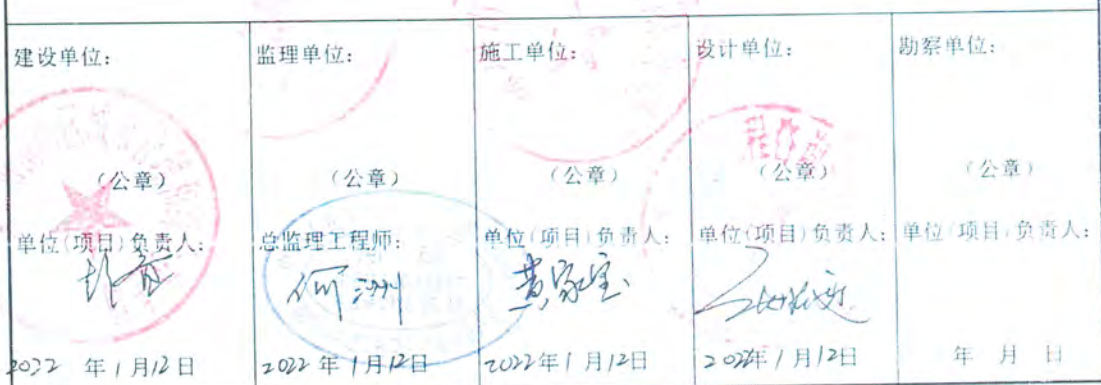 建设单位:
监理单位:
施工单位:
设计单位:
勘察单位:
(公章)
(公章)
(公章)
(公章)
(公章)
单位(项目)负责人:
总监理工程师:
单位(项目)负责人:
单位(项目)负责人:
单位(项目)负责人:
何洲
黄家宝
2022 年 1 月 12 日
2022 年 1 月 12 日
2022 年 1 月 12 日
2022 年 1 月 12 日
年 月 日